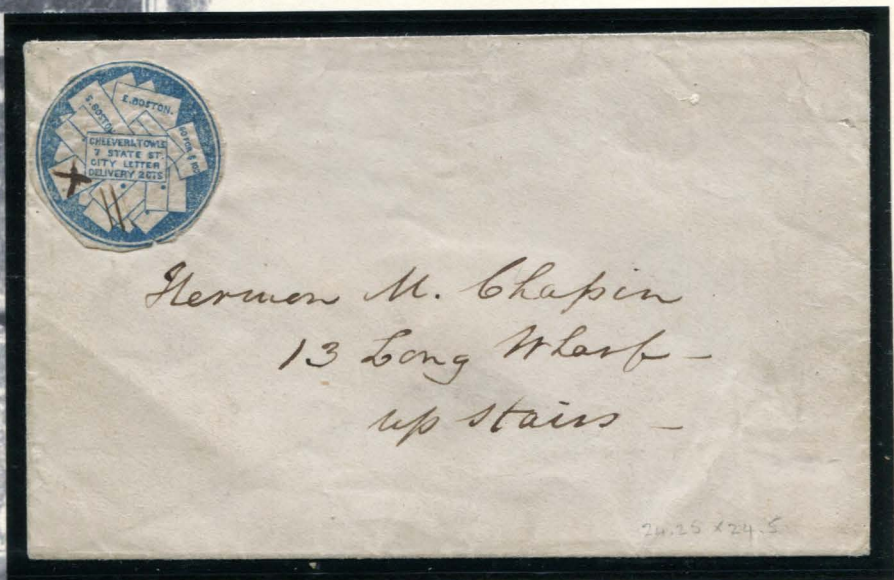 S. BOSTON
E. BOSTON.
CHEEVER & TOWLE
7 STATE ST.
CITY LETTER
DELIVERY 2 CTS
Hermon M. Chapin
13 Long Wharf -
up stairs -
24.25 x 24.5